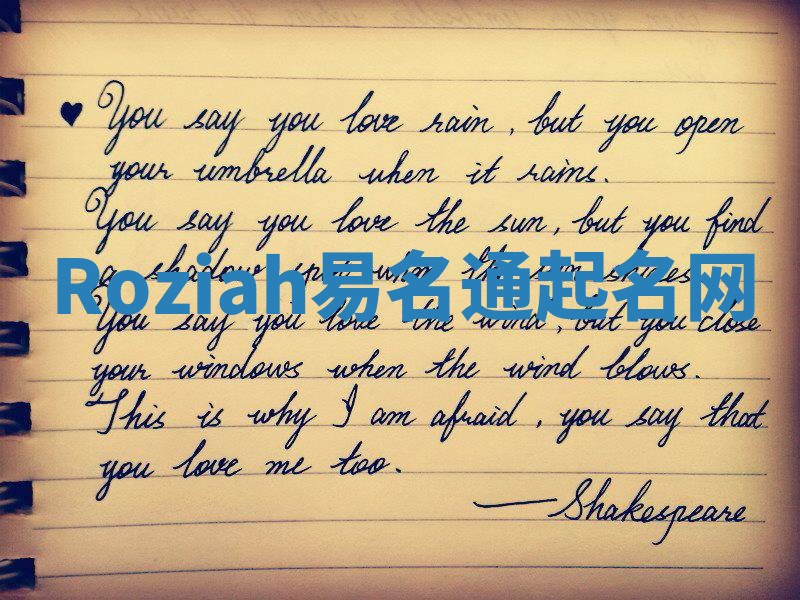 ♥ You say you love rain, but you open
your umbrella when it rains.
You say you love the sun, but you find
a shadow spot when the sun shines.
Roziah易名通起名网
You say you love the wind, but you close
your windows when the wind blows.
This is why I am afraid, you say that
you love me too.
— Shakespeare